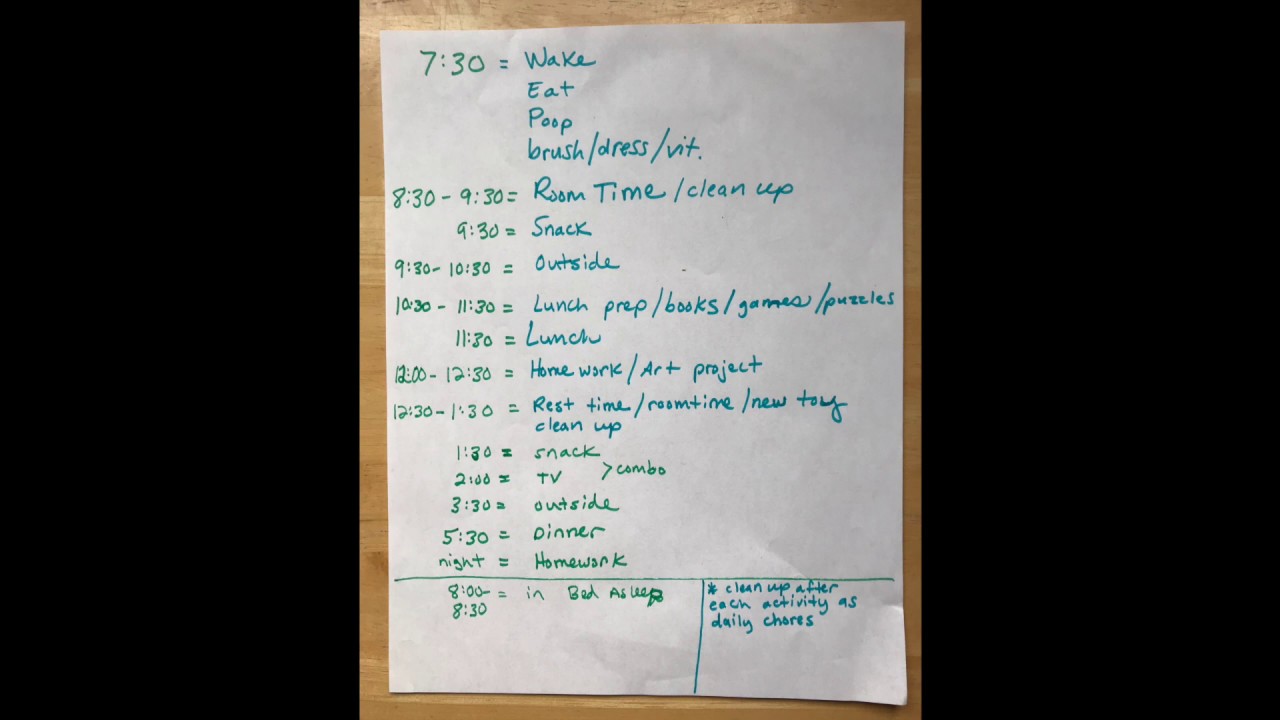 7:30 = Wake
Eat
Poop
brush/dress/vit.
8:30 - 9:30 = Room Time /clean up
9:30 = Snack
9:30- 10:30 = Outside
10:30 - 11:30 = Lunch prep/books/games/puzzles
11:30 = Lunch
12:00- 12:30 = Homework/Art project
12:30-1:30 = Rest time/roomtime/new toy
clean up
1:30 = snack
2:00 = TV >combo
3:30 = outside
5:30 = Dinner
night = Homework
8:00- = in Bed Asleep
8:30
* clean up after
each activity as
daily chores